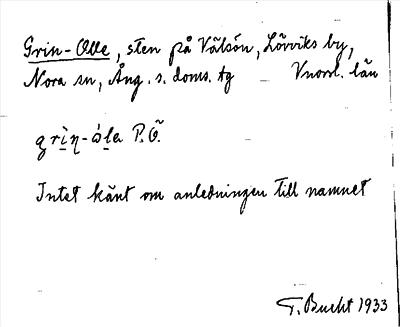 Grin-Olle, sten på Välsön, Lövviks by,
Nora sn, Ång. s. doms. tg Vnorrl. län
grìn-òla P.Ö.
Intet känt om anledningen till namnet
T. Bucht 1933